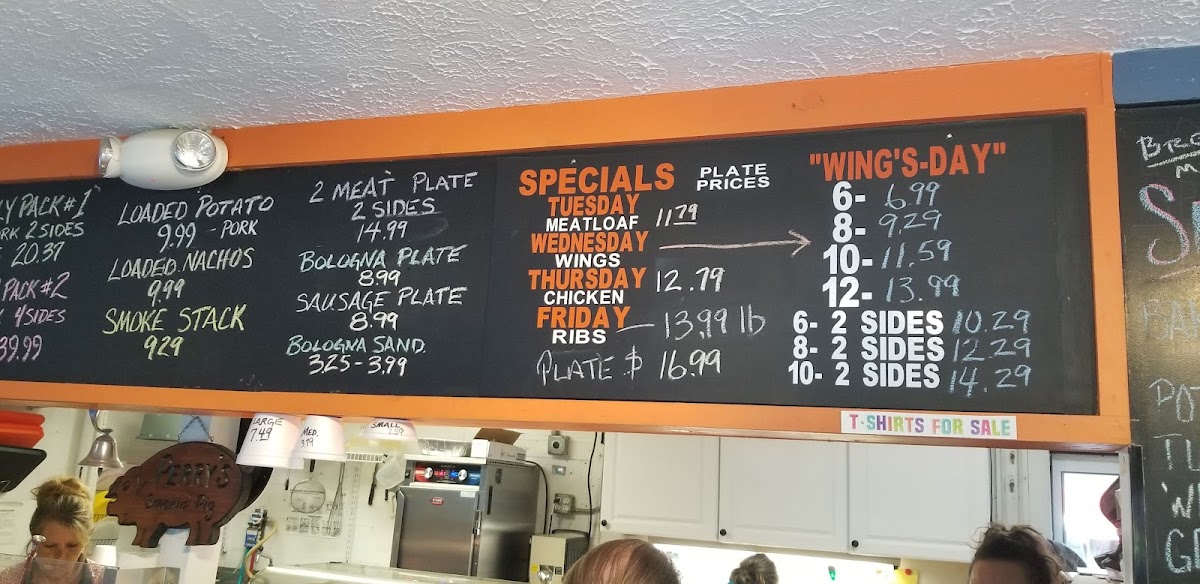 Y PACK #1
RK 2 SIDES
20.37
PACK #2
4 SIDES
39.99
LOADED POTATO
9.99 - PORK
LOADED NACHOS
9.99
SMOKE STACK
929
2 MEAT PLATE
2 SIDES
14.99
BOLOGNA PLATE
8.99
SAUSAGE PLATE
8.99
BOLOGNA SAND.
325 - 3.99
SPECIALS PLATE PRICES
TUESDAY
MEATLOAF 11.79
WEDNESDAY
WINGS
THURSDAY 12.79
CHICKEN
FRIDAY
RIBS - 13.99 lb
PLATE $ 16.99
"WING'S-DAY"
6- 6.99
8- 9.29
10- 11.59
12- 13.99
6- 2 SIDES 10.29
8- 2 SIDES 12.29
10- 2 SIDES 14.29
T-SHIRTS FOR SALE
LARGE
7.49
MED.
3.19
SMALL
PERRY'S
Smokin' Pig